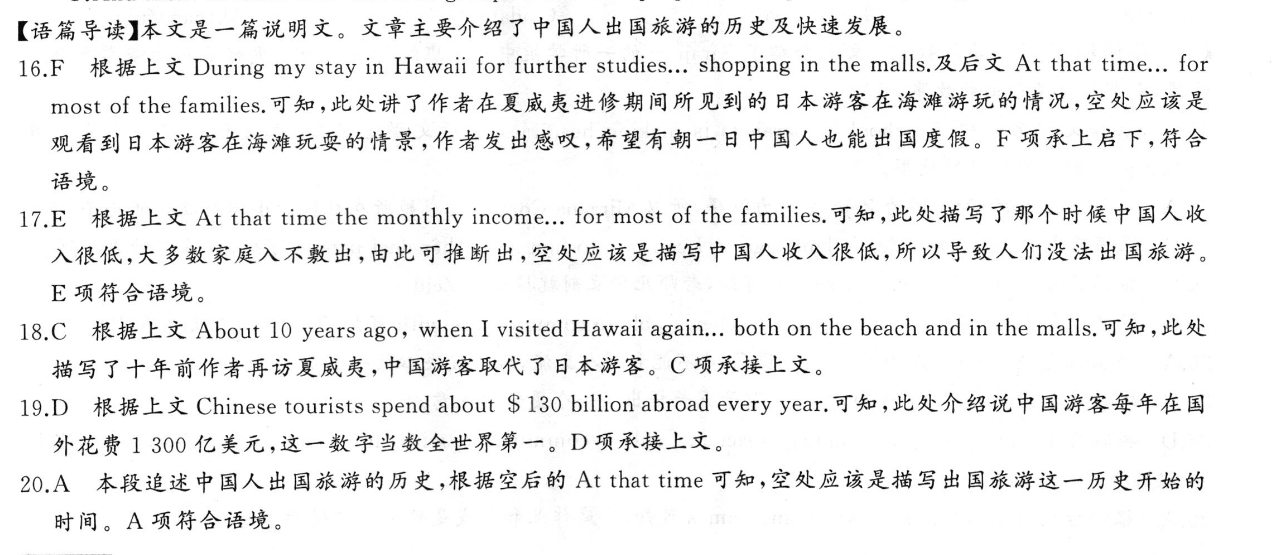 【语篇导读】本文是一篇说明文。文章主要介绍了中国人出国旅游的历史及快速发展。
16.F 根据上文 During my stay in Hawaii for further studies... shopping in the malls.及后文 At that time... for
most of the families.可知,此处讲了作者在夏威夷进修期间所见到的日本游客在海滩游玩的情况,空处应该是
观看到日本游客在海滩玩耍的情景,作者发出感叹,希望有朝一日中国人也能出国度假。F 项承上启下,符合
语境。
17.E 根据上文 At that time the monthly income... for most of the families.可知,此处描写了那个时候中国人收
入很低,大多数家庭入不敷出,由此可推断出,空处应该是描写中国人收入很低,所以导致人们没法出国旅游。
E 项符合语境。
18.C 根据上文 About 10 years ago, when I visited Hawaii again... both on the beach and in the malls.可知,此处
描写了十年前作者再访夏威夷,中国游客取代了日本游客。C 项承接上文。
19.D 根据上文 Chinese tourists spend about $130 billion abroad every year.可知,此处介绍说中国游客每年在国
外花费 1 300 亿美元,这一数字当数全世界第一。D 项承接上文。
20.A 本段追述中国人出国旅游的历史,根据空后的 At that time 可知,空处应该是描写出国旅游这一历史开始的
时间。A 项符合语境。